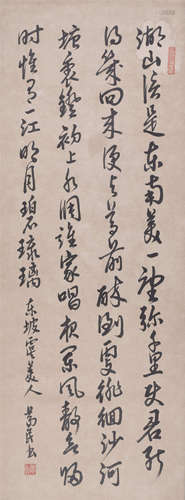 湖山信是东南美一望弥千里使君能
得幾回来便与尊前醉倒更徘徊沙河
塘裏燈初上水调谁家唱夜阑风静欲归
时惟有一江明月碧琉璃 东坡虞美人 书